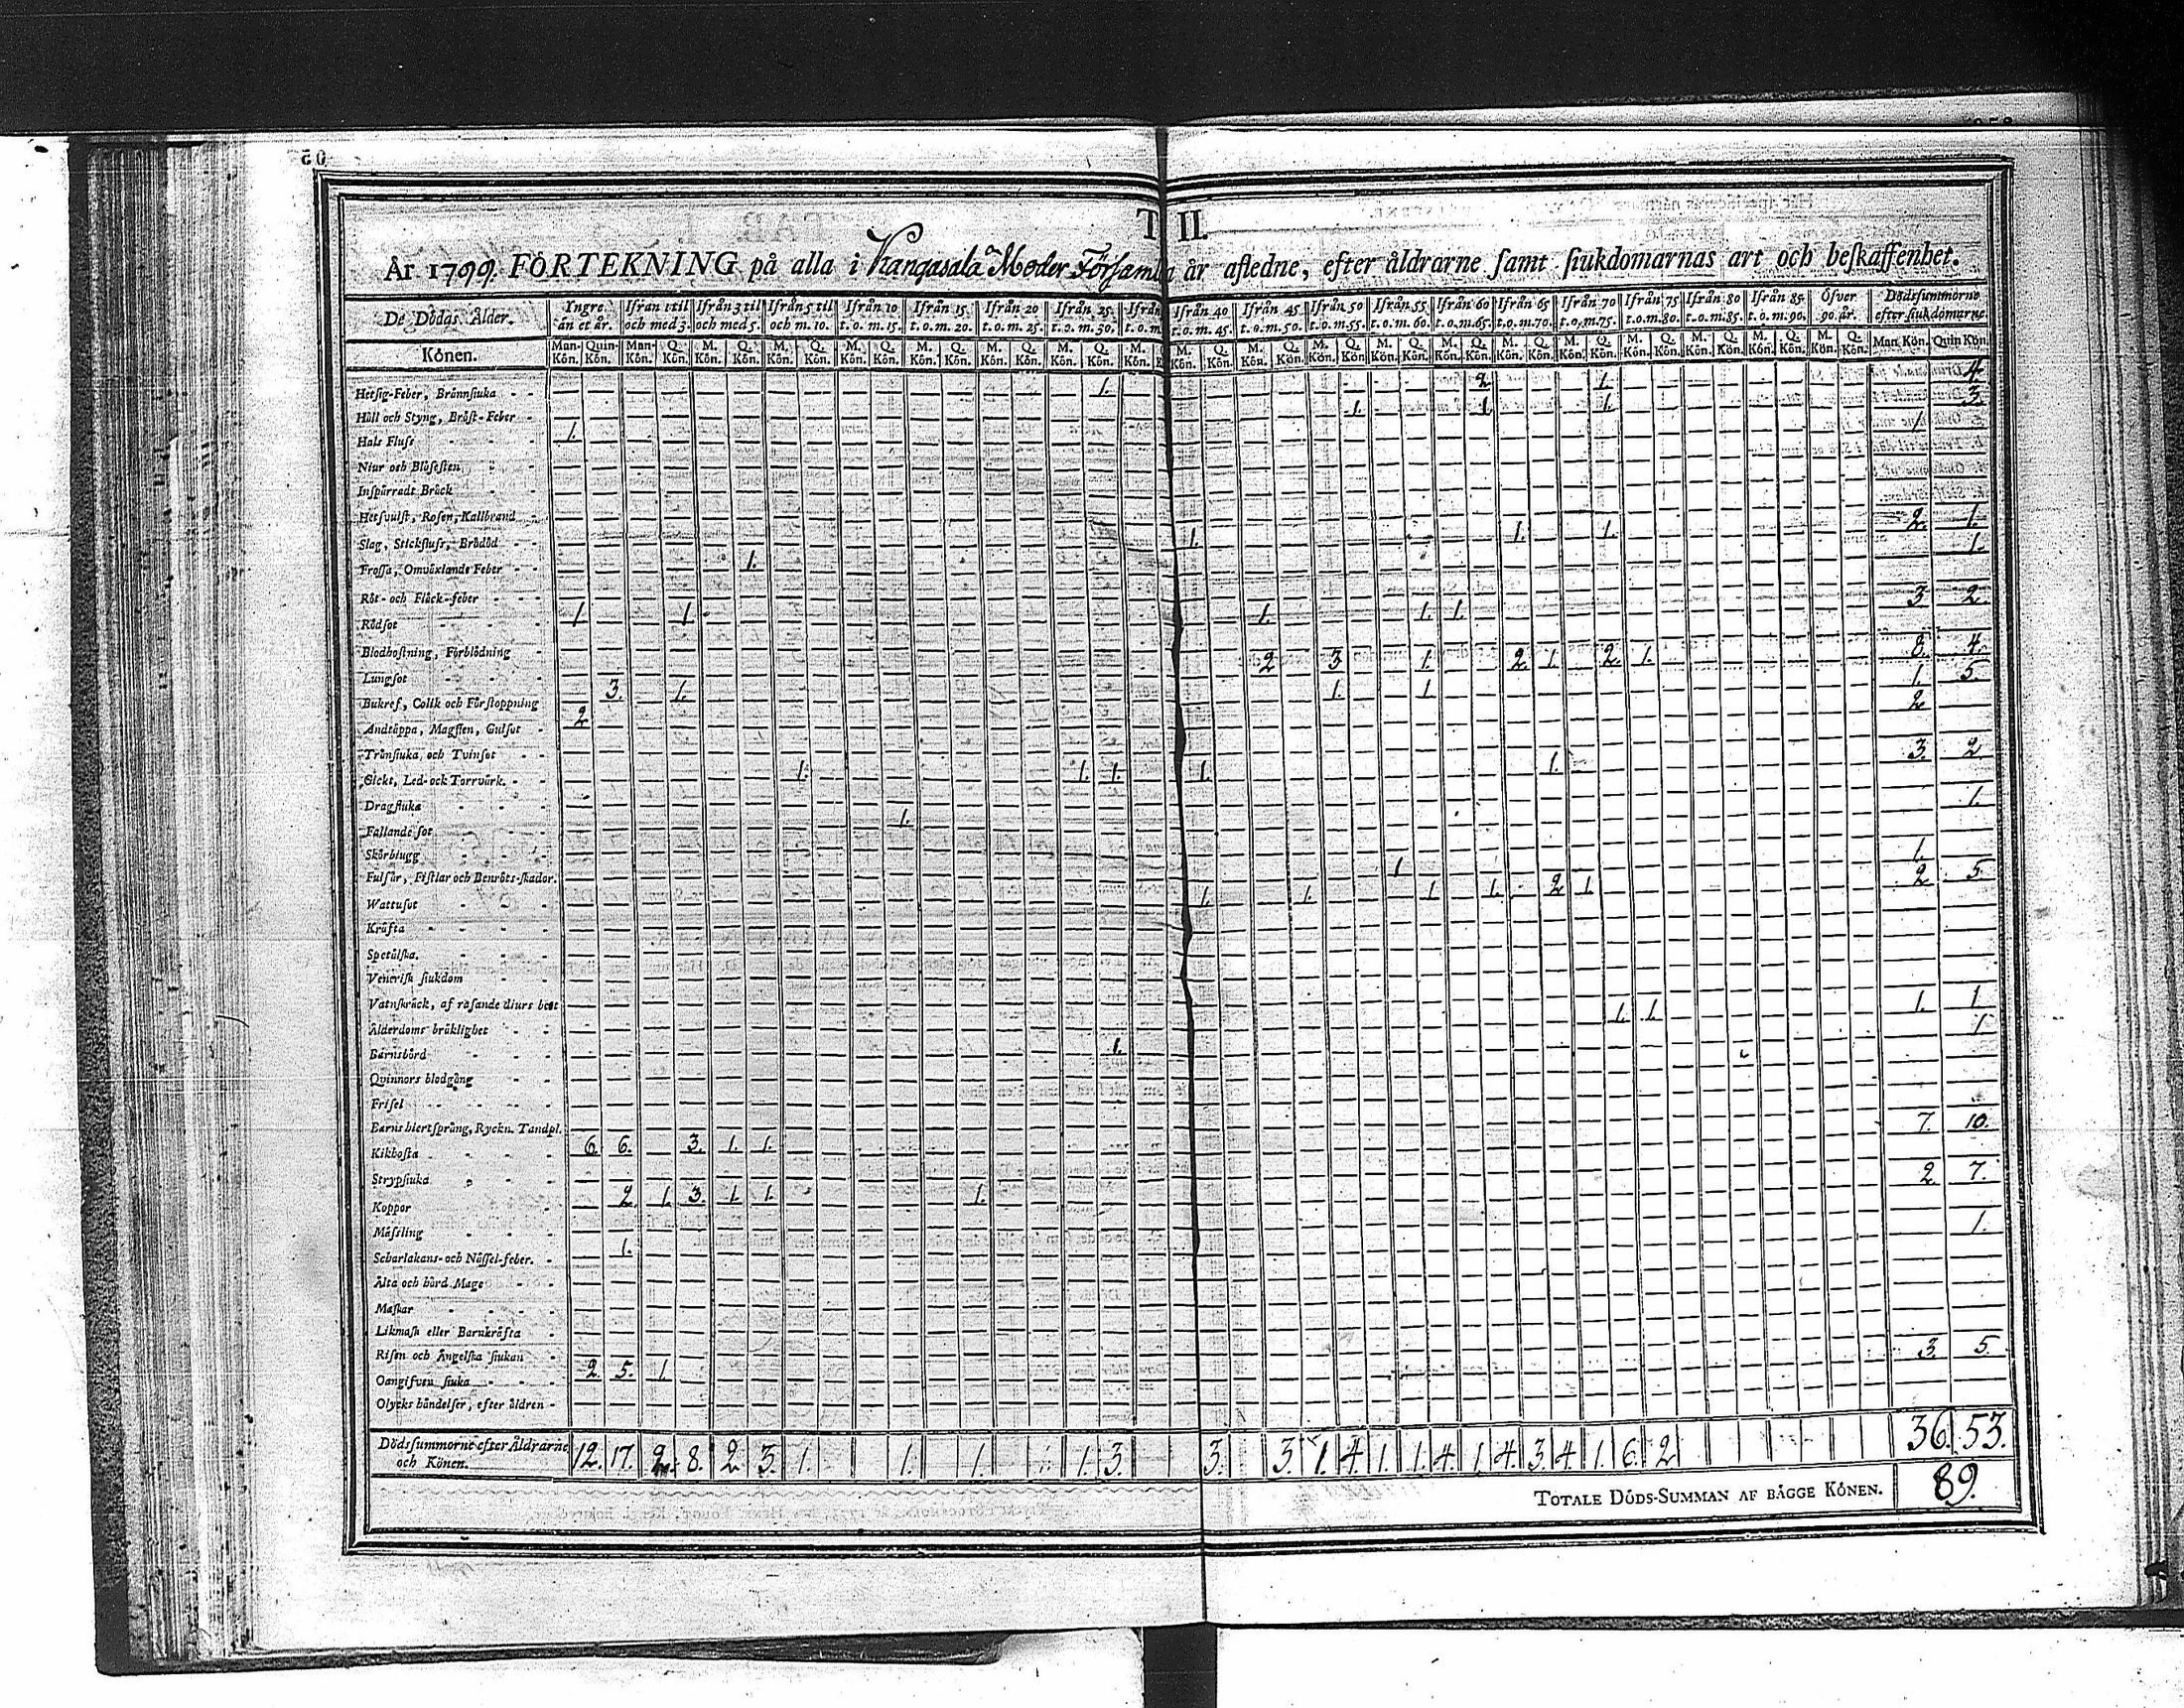 50
T II.
År 1799. FÖRTEKNING på alla i Kangasala Moder Församl år afledne, efter åldrarne samt siukdomarnas art och beskaffenhet.
De Dödas Ålder. Yngre än et år. Ifrån 1 til och med 3. Ifrån 3 til och med 5. Ifrån 5 til och m. 10. Ifrån 10 t. o. m. 15. Ifrån 15 t. o. m. 20. Ifrån 20 t. o. m. 25. Ifrån 25 t. o. m. 30. Ifrån t. o. m. Ifrån 40 t. o. m. 45. Ifrån 45 t. o. m. 50. Ifrån 50 t. o. m. 55. Ifrån 55 t. o. m. 60. Ifrån 60 t. o. m. 65. Ifrån 65 t. o. m. 70. Ifrån 70 t. o. m. 75. Ifrån 75 t. o. m. 80. Ifrån 80 t. o. m. 85. Ifrån 85 t. o. m. 90. Öfver 90 år. Dödssummorne efter siukdomarne
Könen. Man-Kön. Quin-Kön. Man-Kön. Q. Kön. M. Kön. Q. Kön. M. Kön. Q. Kön. M. Kön. Q. Kön. M. Kön. Q. Kön. M. Kön. Q. Kön. M. Kön. Q. Kön. M. Kön. M. Kön. Q. Kön. M. Kön. Q. Kön. M. Kön. Q. Kön. M. Kön. Q. Kön. M. Kön. Q. Kön. M. Kön. Q. Kön. M. Kön. Q. Kön. M. Kön. Q. Kön. M. Kön. Q. Kön. M. Kön. Q. Kön. M. Kön. Q. Kön. Man Kön. Quin Kön.
Hetsig-Feber, Brännsiuka 1. 2 1. 4.
Håll och Styng, Bröst-Feber 1. 1. 1. 3.
Hals Fluss 1. 1
Niur och Blåsesten
Inspärradt Bråck
Hetsvulst, Rosen, Kallbrand
Slag, Stickfluss, Brådöd 1. 1. 1. 2. 1.
Frossa, Omväxlande Feber 1. 1.
Röt- och Fläck-feber
Rödsot 1 1. 1. 1. 1. 3 2.
Blodhostning, Förblödning
Lungsot 2 3 1. 2. 1. 2. 1. 8. 4.
Bukref, Colik och Förstoppning 3. 1. 1. 1 1. 5.
Andtäppa, Magsten, Gulsot 2 2
Trånsiuka och Tvinsot
Gickt, Led- och Torrvärk. 1. 1. 1. 1. 1. 3. 2
Dragsiuka
Fallande sot 1. 1.
Skörbiugg
Fulsår, Fistlar och Benröts-skador. 1 1.
Wattusot 1. 1. 1 1. 2 1 2 5.
Kräfta
Spetälska.
Venerisk siukdom
Vatnskräck, af rasande diurs bett
Ålderdoms bräklighet 1. 1. 1. 1
Barnsbörd 1. 1
Qvinnors blodgång
Frisel
Barns hiertsprång, Ryckn. Tandpl.
Kikhosta 6. 6. 3. 1. 1. 7. 10.
Strypsiuka
Koppor 2. 1. 3. 1. 1. 1. 2. 7.
Mässling
Scharlakans- och Nässel-feber. 1. 1.
Älta och hård Mage
Maskar
Likmask eller Barnkräfta
Risen och Ängelska siukan
Oangifven siuka 2. 5. 1. 3. 5.
Olycks händelser, efter åldren
Dödssummorne efter Åldrarne och Könen. 12. 17. 2. 8. 2 3. 1. 1. 1. 1. 3. 3. 3. 1. 4. 1. 1. 4. 1. 4. 3. 4. 1. 6. 2 36. 53.
TOTALE DÖDS-SUMMAN AF BÄGGE KÖNEN. 89.